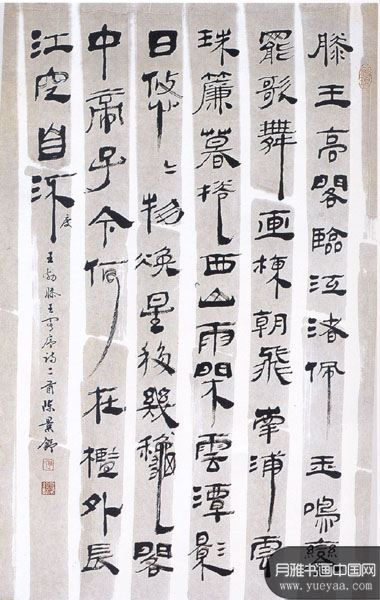 滕王高閣臨江渚佩玉鳴鸞
罷歌舞画棟朝飛南浦雲
珠簾暮捲西山雨閑雲潭影
日悠々物換星移幾穐閣
中帝子今何在檻外長
江空自流度
王勃滕王閣序詩一首陳景舒
月雅书画中国网
www.yueyaa.com